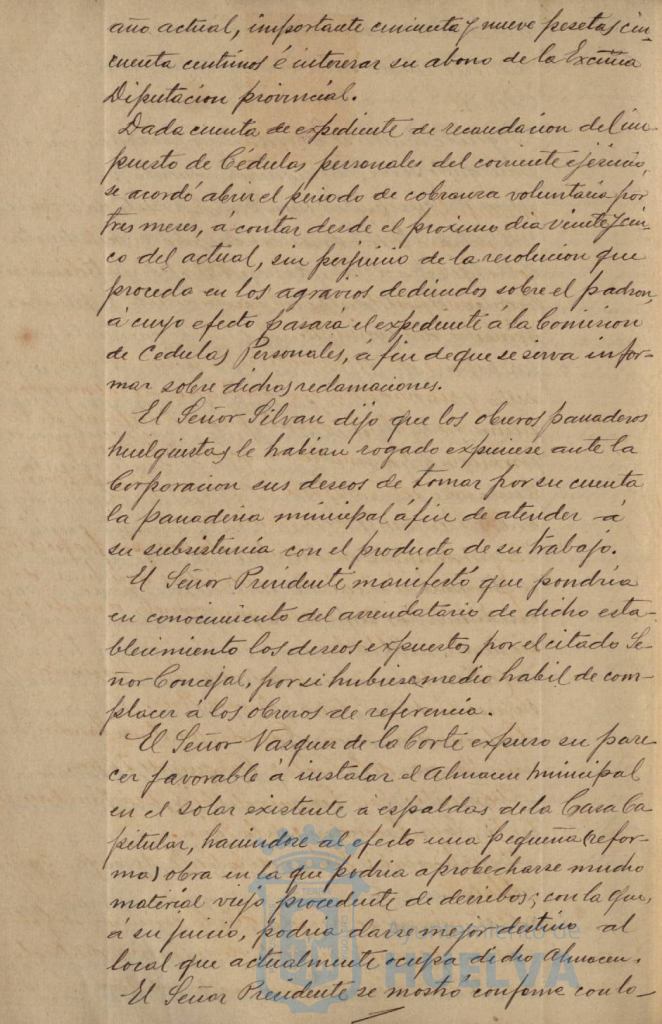 año actual, importante cincuenta y nueve pesetas cin-
cuenta centimos é interesar su abono de la Excma
Diputacion provincial.
Dada cuenta de expediente de recaudacion del im-
puesto de Cédulas personales del corriente ejercicio,
se acordó abrir el periodo de cobranza voluntaria por
tres meses, á contar desde el proximo dia veinte y cin-
co del actual, sin perjuicio de la resolucion que
proceda en los agravios deducidos sobre el padron,
á cuyo efecto pasará el expediente á la Comision
de Cedulas Personales, á fin de que se sirva infor-
mar sobre dichas reclamaciones.
El Señor Silvan dijo que los obreros panaderos
huelguistas le habian rogado expusiese ante la
Corporacion sus deseos de tomar por su cuenta
la panaderia municipal á fin de atender á
su subsistencia con el producto de su trabajo.
El Señor Presidente manifestó que pondria
en conocimiento del arrendatario de dicho esta-
blecimiento los deseos expuestos por el citado Se-
ñor Concejal, por si hubiese medio habil de com-
placer á los obreros de referencia.
El Señor Vazquez de la Corte expuso su pare
cer favorable á instalar el Almacen municipal
en el solar existente á espaldas de la Casa Ca
pitular, haciendose al efecto una pequeña (refor-
ma) obra en la que podria aprobecharse mucho
material viejo procedente de derribos; con la que,
á su juicio, podria darse mejor destino al
local que actualmente ocupa dicho Almacen.
El Señor Presidente se mostró conforme con lo-
Ayuntamiento de
HUELVA